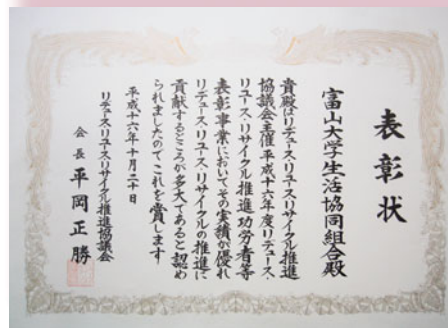 表彰状
富山大学生活協同組合殿
貴殿はリデュース・リユース・リサイクル推進
協議会主催平成十六年度リデュース・
リユース・リサイクル推進功労者等
表彰事業においてその実績が優れ
リデュース・リユース・リサイクルの推進に
貢献するところが多大であると認め
られましたのでこれを賞します
平成十六年十月二十日
リデュース・リユース・リサイクル推進協議会
会長 平岡正勝